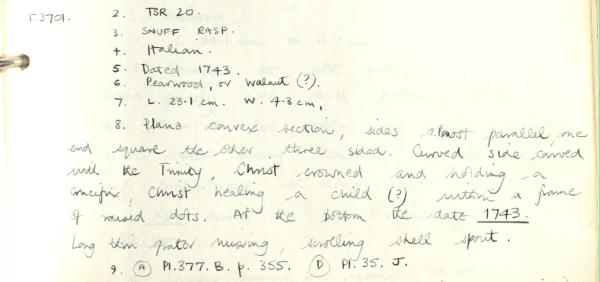 T3701.
2. TSR 20.
3. SNUFF RASP.
4. Italian.
5. Dated 1743.
6. Pearwood, or walnut (?).
7. L. 23.1 cm. W. 4.3 cm,
8. Plano convex section, sides almost parallel, one
end square the other three sided. Curved side carved
with the Trinity, Christ crowned and holding a
crucifix, Christ healing a child (?) within a frame
of raised dots. At the bottom the date 1743.
Long thin grater missing, scrolling shell spout.
9. (A) Pl. 377. B. p. 355. (D) Pl. 35. J.